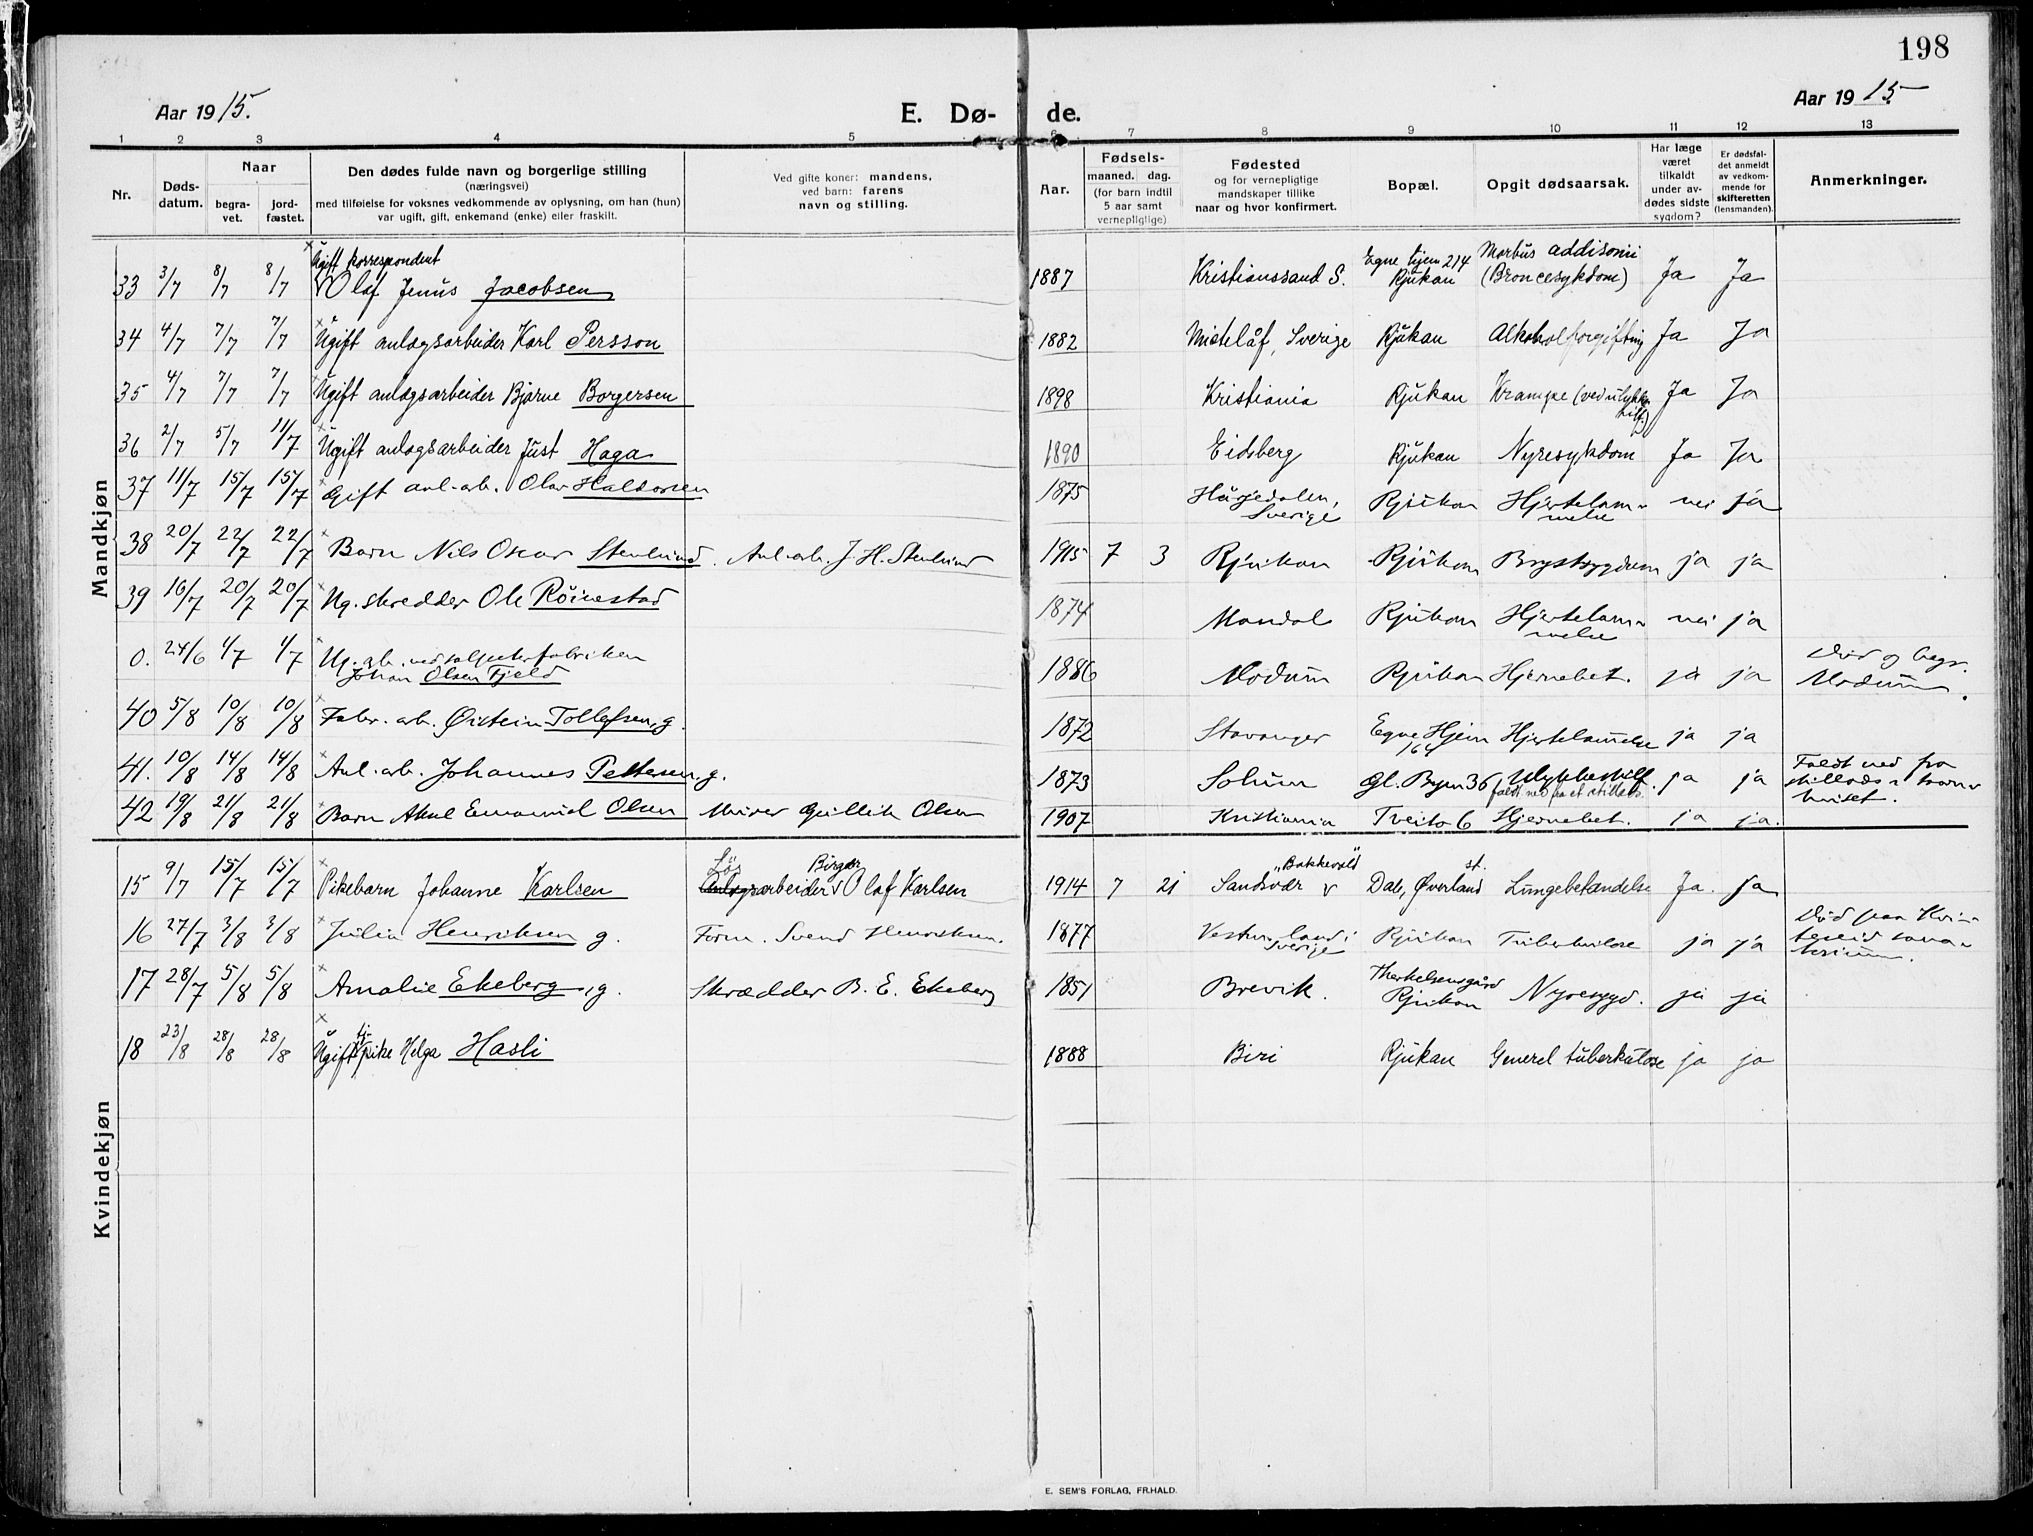 198
Aar 1915. E. Dø- de. Aar 1915
1 2 3 4 5 6 7 8 9 10 11 12 13
Nr. Døds-datum. Naar begra-vet. jord-fæstet. Den dødes fulde navn og borgerlige stilling (næringsvei) med tilføielse for voksnes vedkommende av oplysning, om han (hun) var ugift, gift, enkemand (enke) eller fraskilt. Ved gifte koner: mandens, ved barn: farens navn og stilling. Aar. Fødsels-maaned. dag. (for barn indtil 5 aar samt vernepligtige). Fødested og for vernepligtige mandskaper tillike naar og hvor konfirmert. Bopæl. Opgit dødsaarsak. Har læge været tilkaldt under av-dødes sidste sygdom? Er dødsfal-det anmeldt av vedkom-mende for skifteretten (lensmanden). Anmerkninger.
Mandkjøn
33 3/7 8/7 8/7 Ugift korrespondent Olaf Jenus Jacobsen 1887 Kristianssand S. Egne hjem 214 Rjukan Morbus addisonii (Broncesykdom) Ja Ja
34 4/7 7/7 7/7 Ugift anlægsarbeider Karl Persson 1882 Sverige Rjukan Alkoholforgiftnig Ja Ja
35 4/7 7/7 7/7 Ugift anlægsarbeider Bjarne Borgersen 1898 Kristiania Rjukan Krampe (ved ulykkestilf.) Ja Ja
36 2/7 5/7 11/7 Ugift anlægsarbeider Just Haga 1890 Eidsberg Rjukan Nyresykdom Ja Ja
37 11/7 15/7 15/7 Gift anl. arb. Olav Haldorsen 1875 Härjedalen, Sverige Rjukan Hjertelammelse nei ja
38 20/7 22/7 22/7 Barn Nils Oscar Stenlund. Anl. arb. J. H. Stenlund 1915 7 3 Rjukan Rjukan Brystsygdom ja ja
39 16/7 20/7 20/7 Ug. skredder Ole Røinestad 1874 Mandal Rjukan Hjertelammelse nei ja
0. 24/6 1/7 1/7 Ug. arb. ved salpeterfabriken Johan Olsen Fjeld 1886 Modum Rjukan Hjernebet. ja ja Død og begr. Modum.
40 5/8 10/8 10/8 Fabr. arb. Øistein Tollefsen, g. 1872 Stavanger Egne Hjem 164 Hjertelammelse ja ja
41. 10/8 14/8 14/8 Anl. arb. Johannes Pettersen, g. 1873 Solum Gl. Byen 36 Ulykkestilf. faldt ned fra et stillads. ja ja Faldt ned fra stillads i huset.
42 19/8 21/8 21/8 Barn Emanuel Olsen Murer Gullik Olsen 1907 Kristiania Tveito 6 Hjernebet. ja ja.
Kvindekjøn
15 9/7 15/7 15/7 Pikebarn Johanne Karlsen Løs Anlægsarbeider Birger Olaf Karlsen 1914 7 21 Sandsvær "Bakkevold" Dale, Øverland st. Lungebetændelse Ja. Ja
16 27/7 3/8 3/8 Julia Henriksen g. Form. Svend Henriksen. 1877 Sverige Rjukan Tuberkulose ja ja Død paa Kviteseid sanatorium.
17 28/7 5/8 5/8 Amalie Ekeberg, g. Skrædder B. E. Ekeberg 1851 Brevik. Therkelsensgård Rjukan Nyresygd. ja ja
18 23/8 28/8 28/8 Ugift tj. pike Helga Hasli 1888 Biri Rjukan Generel tuberkulose ja ja
E. SEM'S FORLAG, FR.HALD.